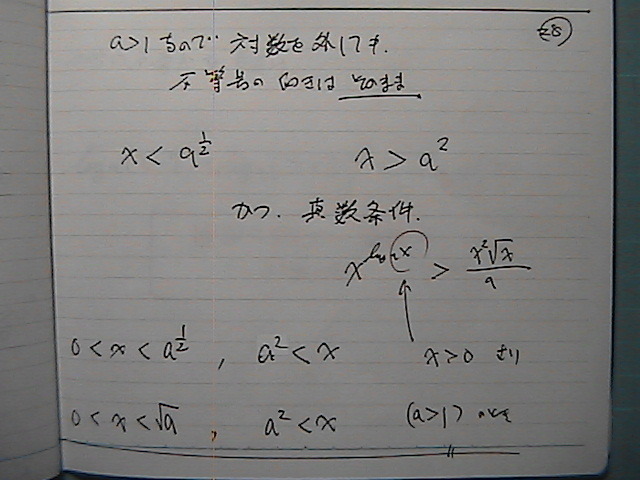 28
a>1なので 対数を外しても、
不等号の向きは そのまま
x < a^{1/2}    x > a^2
かつ、真数条件、
x^{log_a x} > \frac{x^2√x}{a}
0 < x < a^{1/2} , a^2 < x    x>0 より
0 < x < √a , a^2 < x    (a>1) のとき